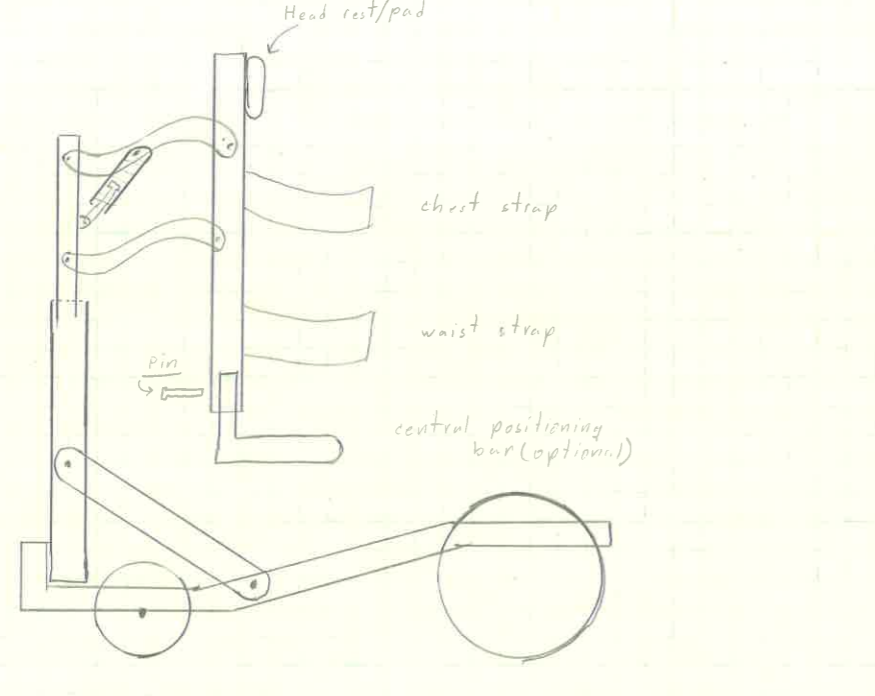 Head rest/pad
chest strap
waist strap
pin
central positioning
bar (optional)